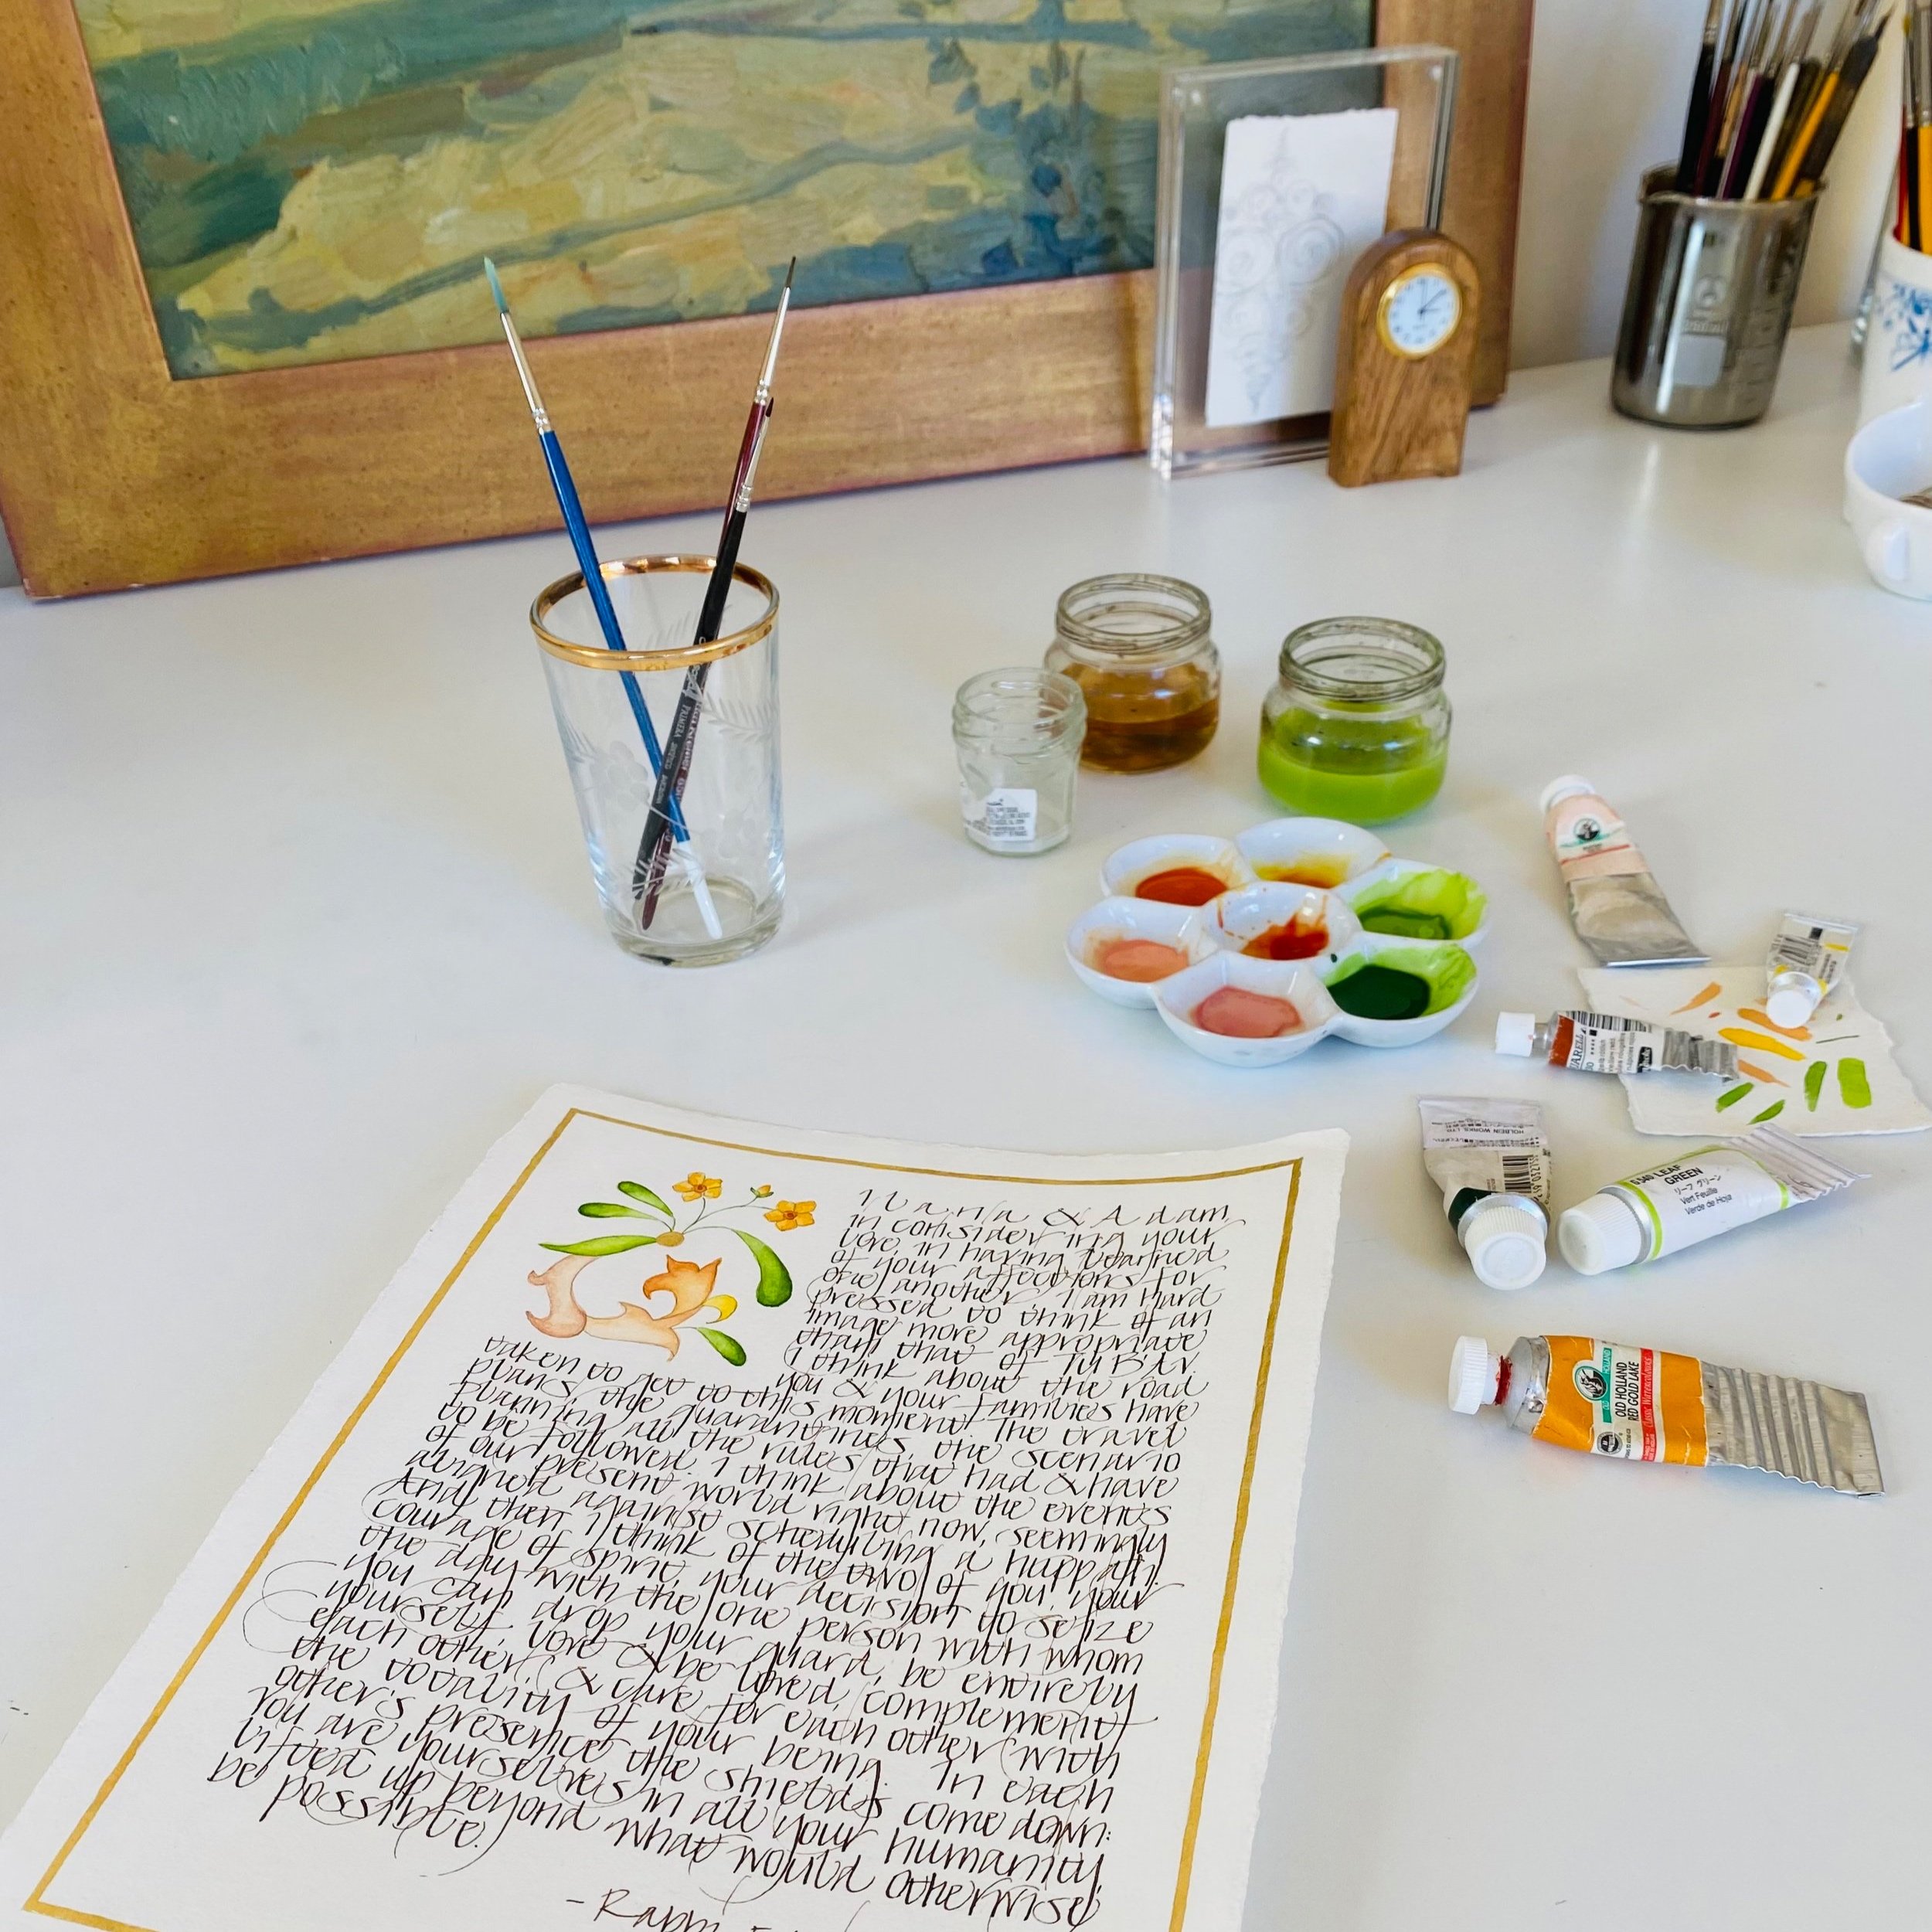 Ilana & Adam,
in considering your
love, in having learned
of your affections for
one another, I am hard
pressed to think of an
image more appropriate
than that of TU B'AV.
I think about the road
you & your families have
taken to get to this moment. The travel
plans, the quarantines, the scenario
planning, all the rules that had & have
to be followed. I think about the events
of our present world right now, seemingly
aligned against scheduling a huppah.
And then I think of the two of you, your
courage of spirit, your decision to seize
the day with the one person with whom
you can drop your guard, be entirely
yourself, love & be loved, complement
each other, & care for each other with
the totality of your being. In each
other's presence the shields come down:
You are yourselves in all your humanity,
lifted up beyond what would otherwise
be possible.
- Rabbi
6340 LEAF
GREEN
リーフ グリーン
Vert Feuille
Verde de Hoja
HOLBEIN WORKS, LTD.
OLD HOLLAND
OLD HOLLAND
RED GOLD LAKE
Classic Watercolours
PRIMERA